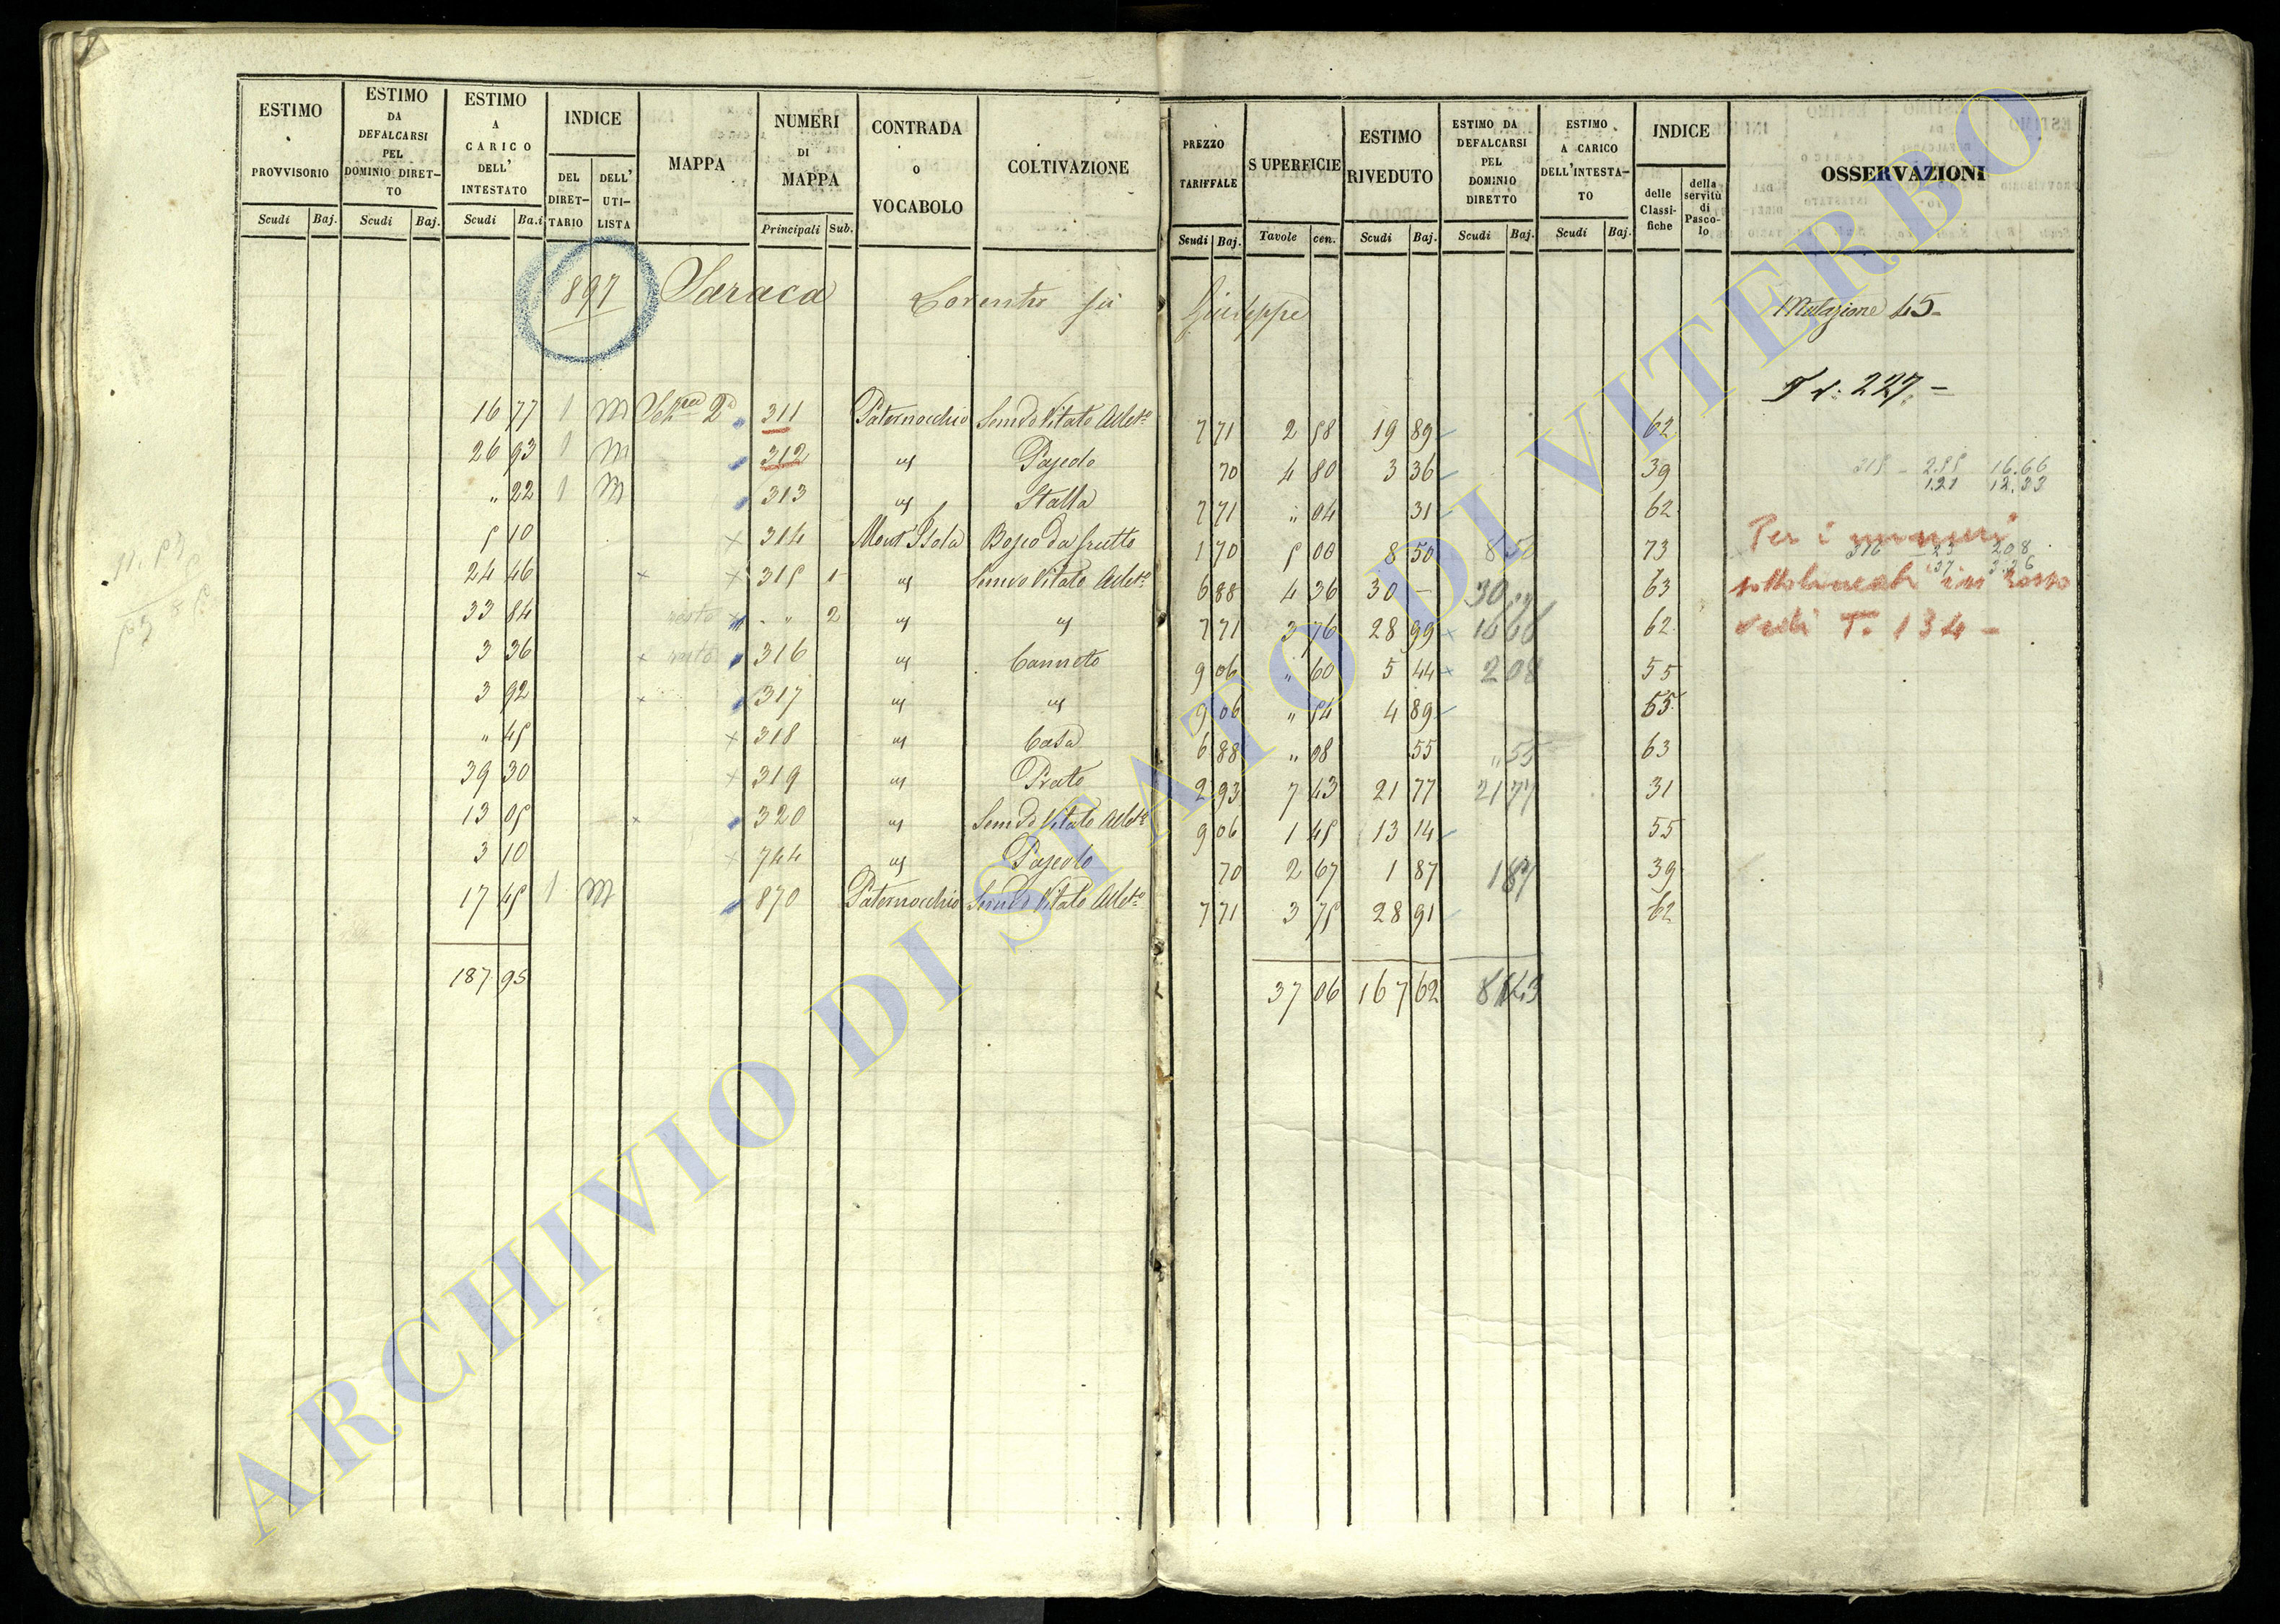 ESTIMO PROVVISORIO Scudi Baj.
ESTIMO DA DEFALCARSI PEL DOMINIO DIRET-TO Scudi Baj.
ESTIMO A CARICO DELL' INTESTATO Scudi Ba.i
INDICE DEL DIRET-TARIO DELL' UTI-LISTA
MAPPA
NUMERI DI MAPPA Principali Sub.
CONTRADA O VOCABOLO
COLTIVAZIONE
PREZZO TARIFFALE Scudi Baj.
SUPERFICIE Tavole cen.
ESTIMO RIVEDUTO Scudi Baj.
ESTIMO DA DEFALCARSI PEL DOMINIO DIRETTO Scudi Baj.
ESTIMO A CARICO DELL'INTESTA-TO Scudi Baj.
INDICE delle Classi-fiche della servitù di Pasco-lo
OSSERVAZIONI
897 Saraca Lorenzo fu Giuseppe Mutazione 45-
T. 227. =
16 77 1 m 2ª 311 Paternocchio Semvo Vitato Albto 7 71 2 58 19 89 62
26 93 1 m 312 id Pascolo 70 4 80 3 36 39
" 22 1 m 313 id Stalla 7 71 " 04 31 62
5 10 × 314 Mont'Isola Bosco da frutto 1 70 5 00 8 50 8 50 73
24 46 × × 315 1 id Semvo Vitato Albto 6 88 4 36 30 – 30 63
33 84 resto " 2 id id 7 71 3 76 28 99 16 66 62
3 36 × resto 316 id Canneto 9 06 " 60 5 44 2 08 55
3 92 × 317 id id 9 06 " 54 4 89 55
" 45 × 318 id Casa 6 88 " 08 55 " 55 63
39 30 × 319 id Prato 2 93 7 43 21 77 21 77 31
13 05 × 320 id Semvo Vitato Albto 9 06 1 45 13 14 55
3 10 × 744 id Pascolo 70 2 67 1 87 1 87 39
17 45 1 m 870 Paternocchio Semvo Vitato Albto 7 71 3 75 28 91 62
187 95 37 06 167 62
315 - 2.55 16.66
1.21 12.33
316 23 208
37 3.36
Per i numeri
sottolineati in rosso
vedi T. 134 -
ARCHIVIO DI STATO DI VITERBO